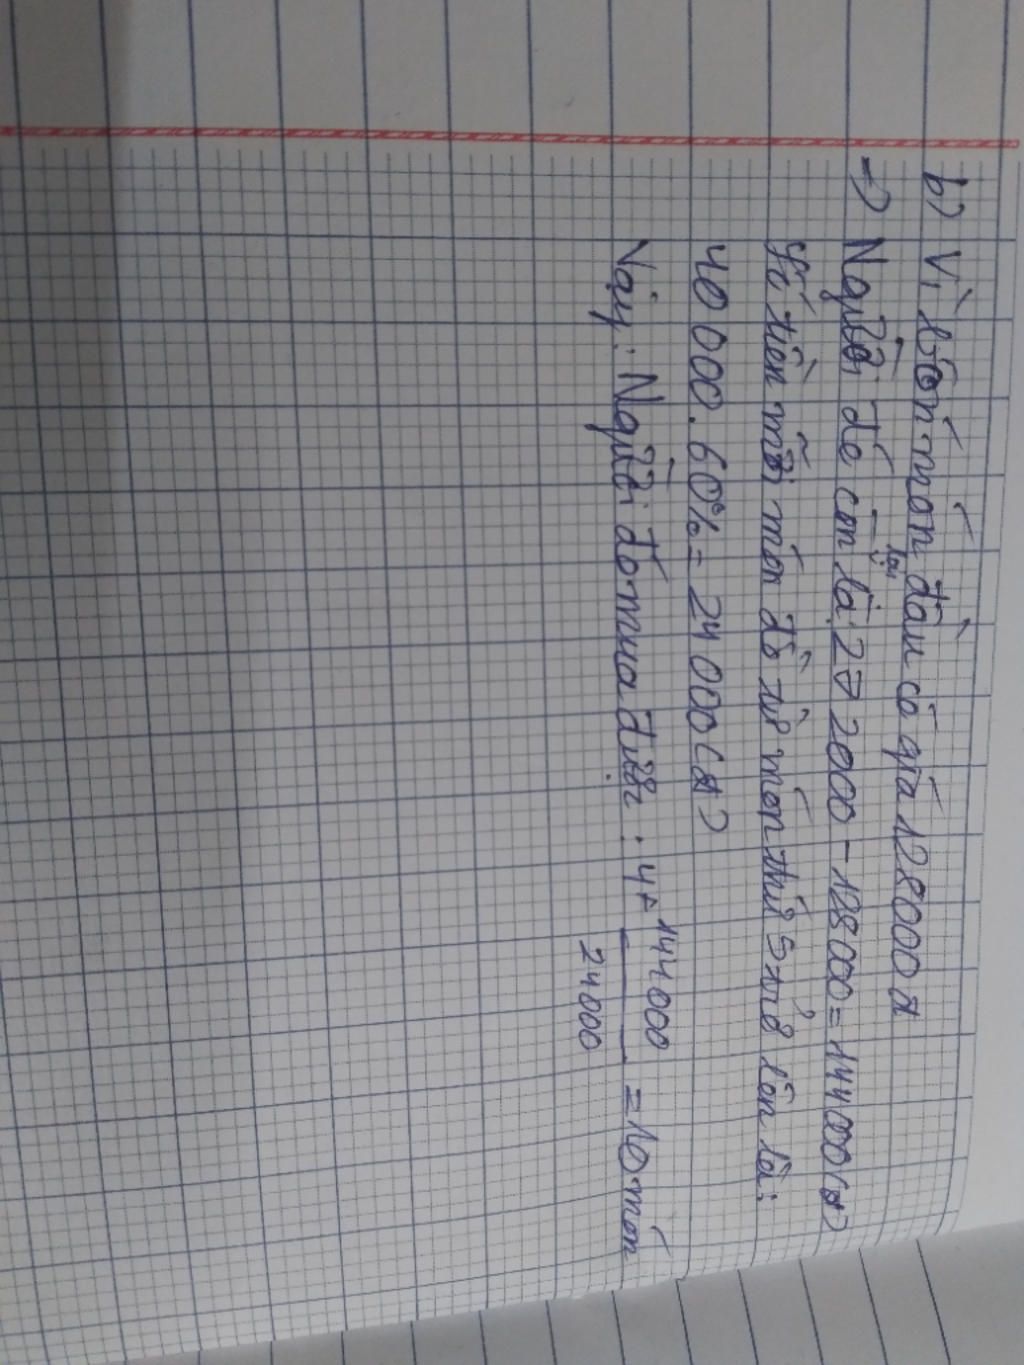 b) Vì bốn món đầu có giá 128000 đ
=> Người đó còn lại là: 272000 - 128000 = 144000(đ)
Số tiền mỗi món đồ từ món thứ 5 trở lên là:
40 000 . 60% = 24 000(đ)
Vậy: Người đó mua được: 4 + 144000/24000 = 10 món